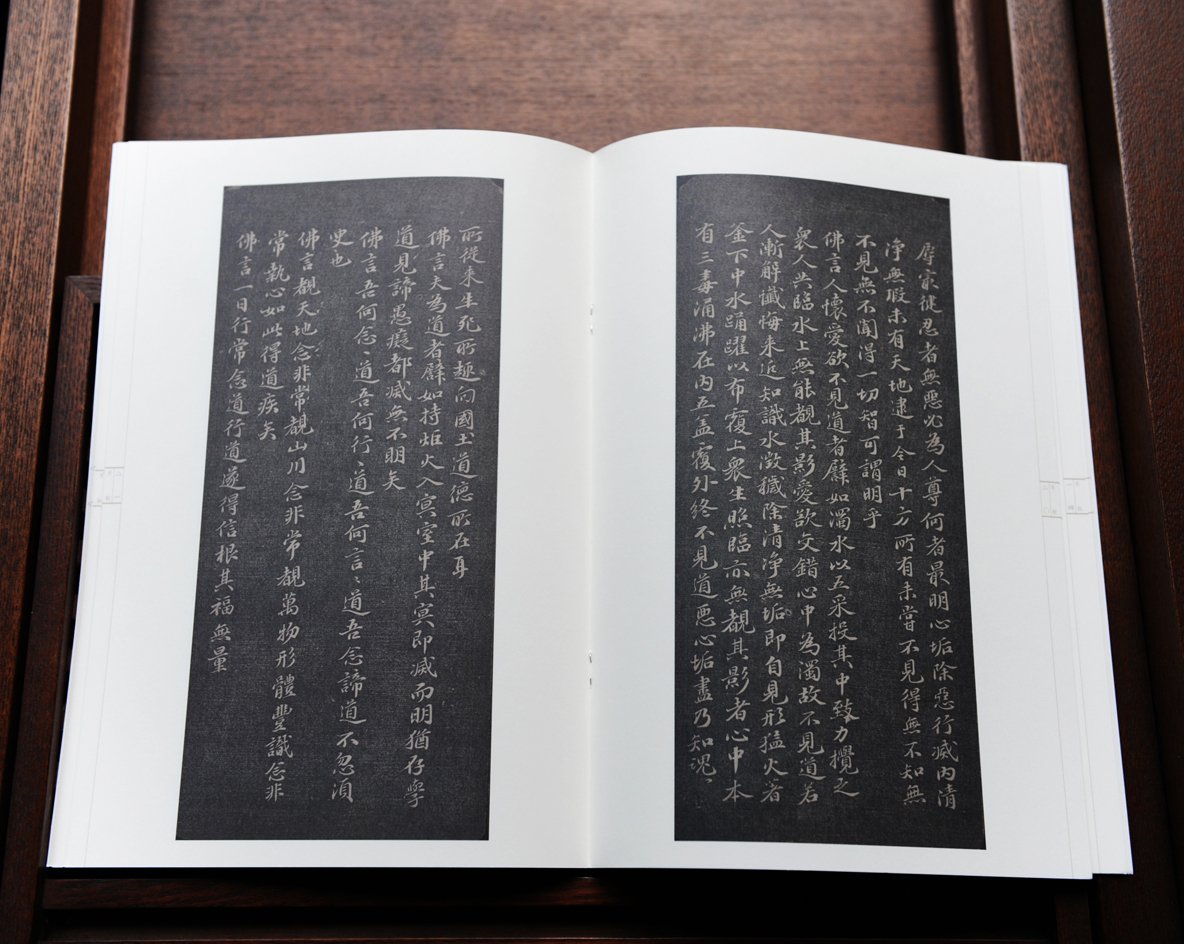 辱最健忍者無惡必為人尊何者最明心垢除惡行滅内清
淨無瑕未有天地逮于今日十方所有未嘗不見得無不知無
不見無不聞得一切智可謂明乎
佛言人懷愛欲不見道者譬如濁水以五采投其中致力攪之
衆人共臨水上無能覩其影愛欲交錯心中為濁故不見道若
人漸解懺悔来近知識水澂穢除清淨無垢即自見形猛火著
釜下中水踊躍以布覆上衆生照臨亦無覩其影者心中本
有三毒涌沸在内五盖覆外終不見道惡心垢盡乃知魂〻
所從来生死所趣向國土道德所在耳
佛言夫為道者譬如持炬火入冥室中其冥即滅而明猶存學
道見諦愚癡都滅無不明矣
佛言吾何念〻道吾何行〻道吾何言〻道吾念諦道不忽須
臾也
佛言覩天地念非常覩山川念非常覩萬物形體豐識念非
常執心如此得道疾矣
佛言一日行常念道行道遂得信根其福無量